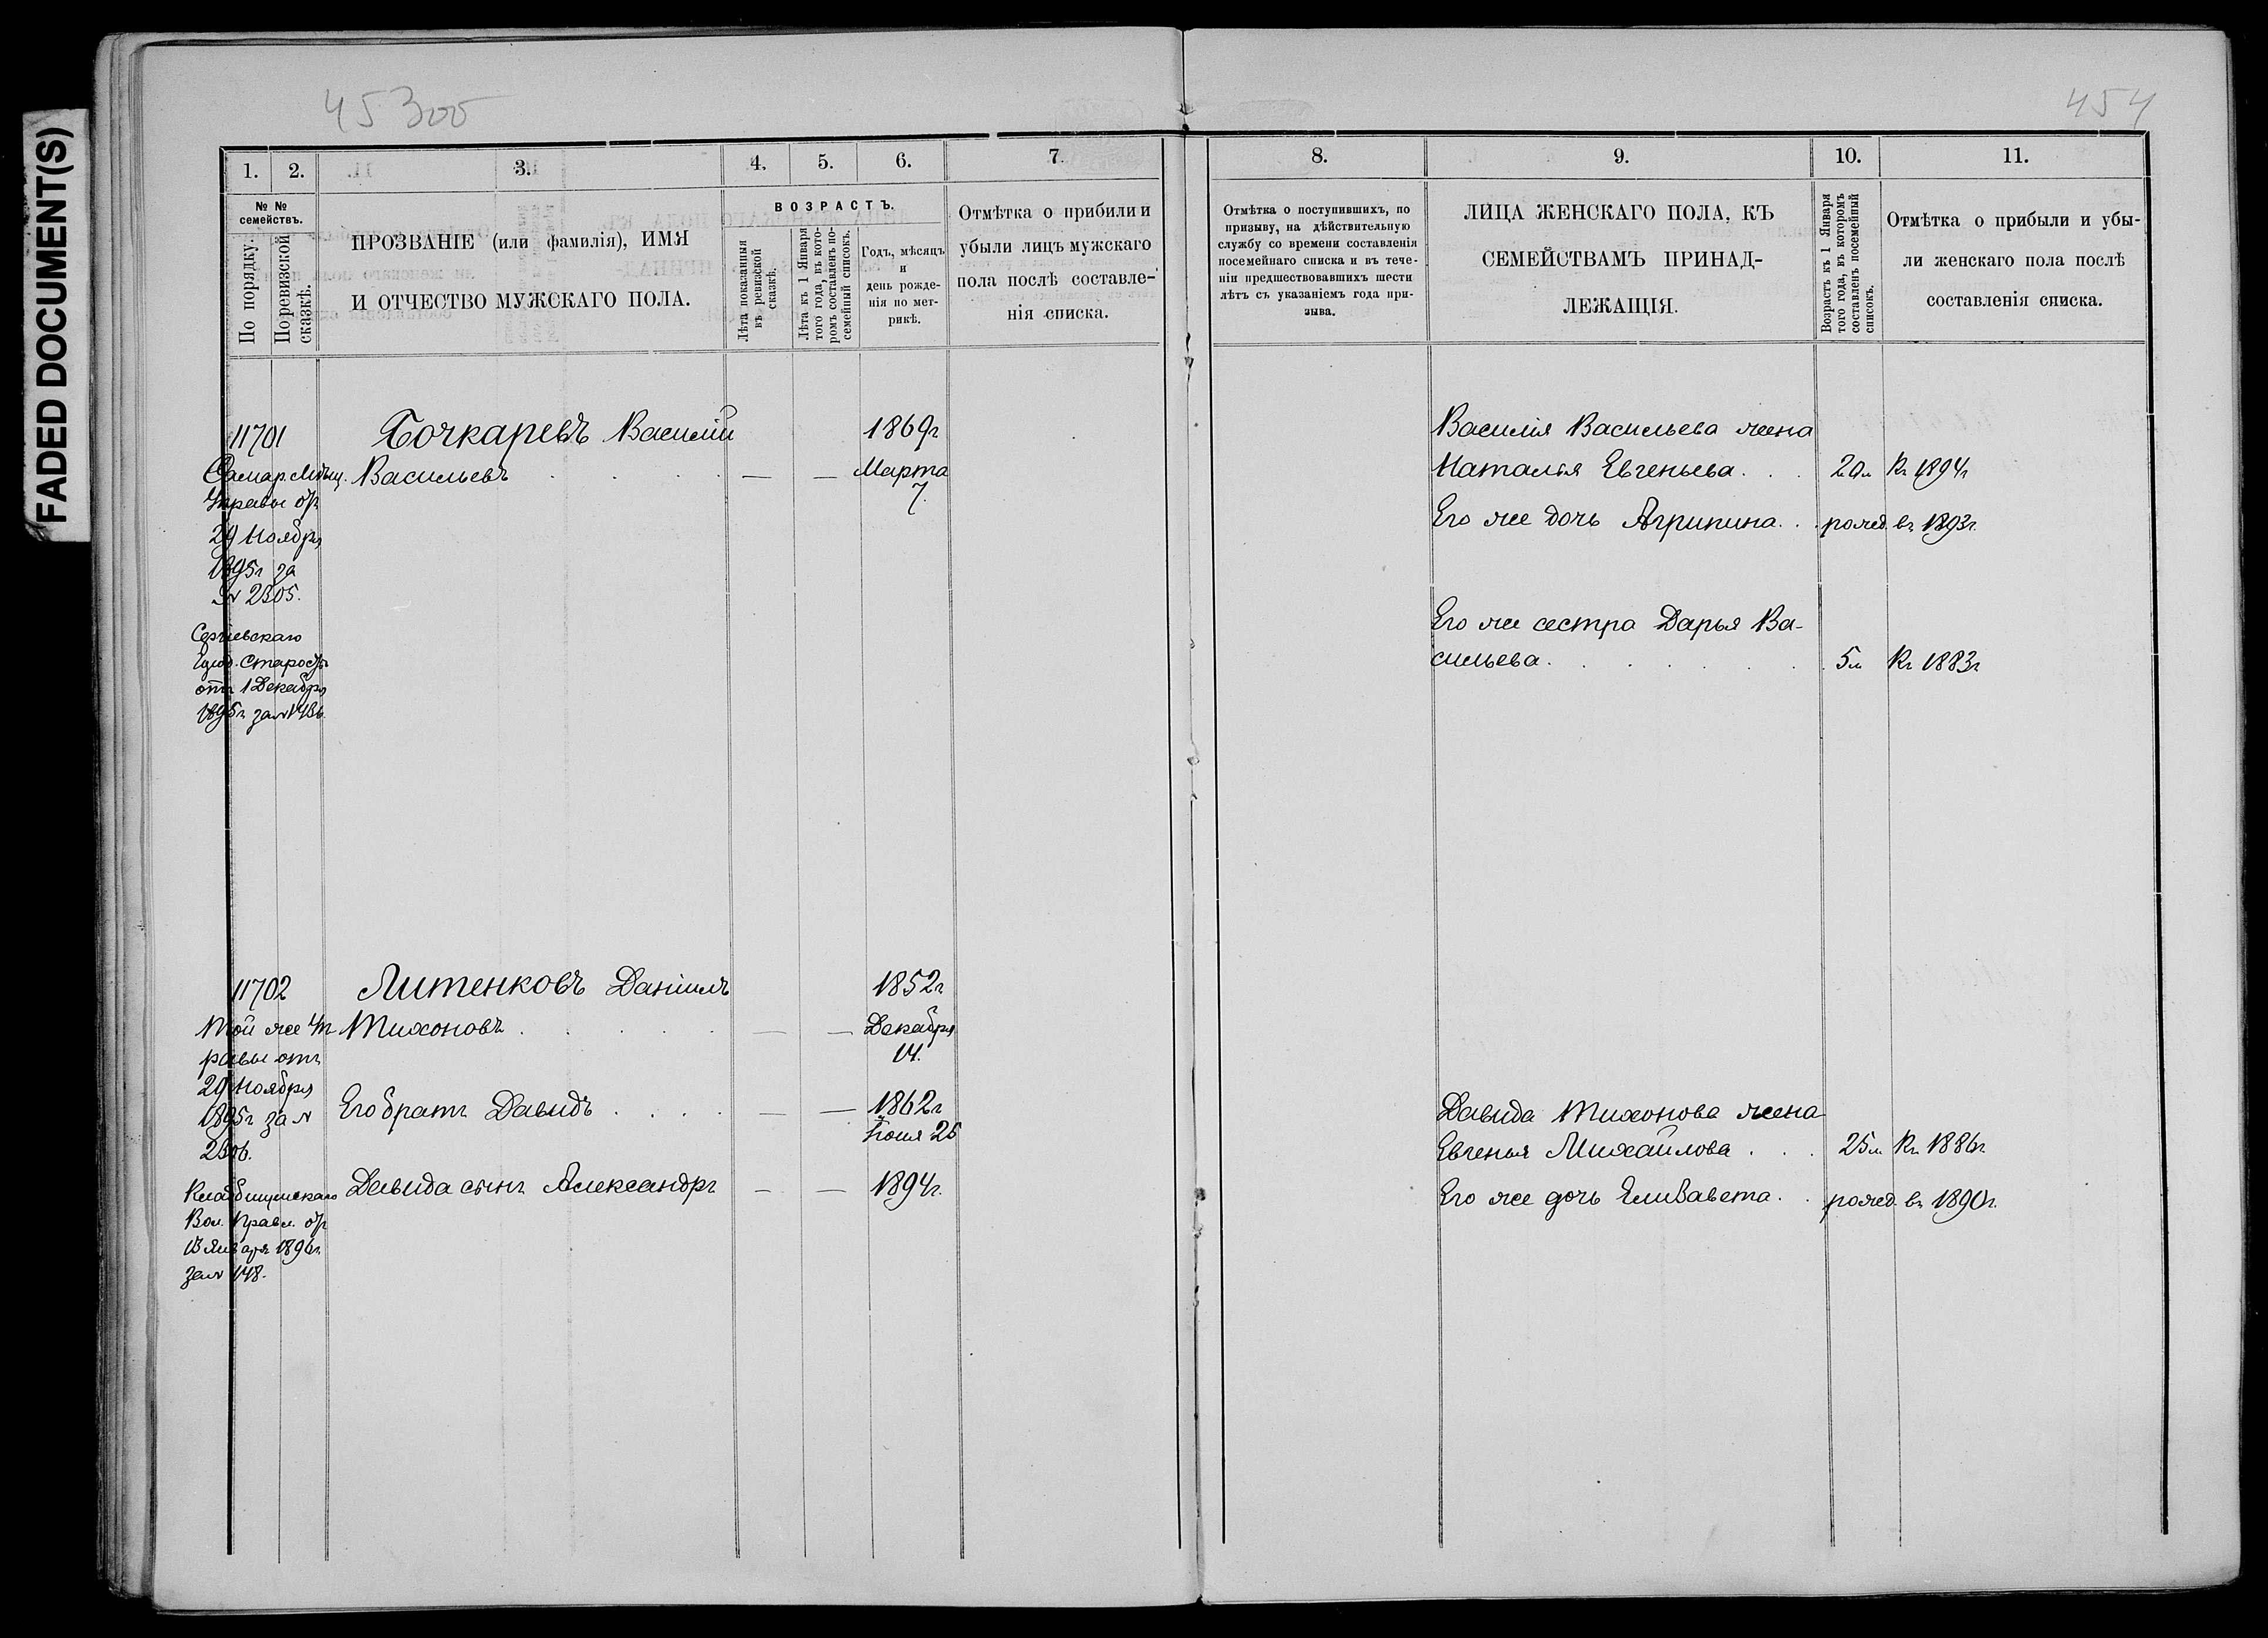 FADED DOCUMENT(S)
453об
454
1. 2. 3. 4. 5. 6. 7.
№ № семействъ.
По порядку.
По ревизской сказкѣ.
ПРОЗВАНІЕ (или фамилія), ИМЯ
И ОТЧЕСТВО МУЖСКАГО ПОЛА.
ВОЗРАСТЪ.
Лѣта показанныя
въ ревизской
сказкѣ.
Лѣта къ 1 Января
того года, въ кото-
ромъ составленъ по-
семейный списокъ.
Годъ, мѣсяцъ
и
день рожде-
нія по мет-
рикѣ.
Отмѣтка о прибыли и
убыли лицъ мужскаго
пола послѣ составле-
нія списка.
11701
Самар. Мѣщ.
Управы от
29 Ноября
1895г за
№ 2305.
Сергіевскаго
старосты
отъ 1 Декабря
1895г за №
Бочкаревъ Василій
Васильевъ . . . . — —
1869г
Марта
7.
11702
Той же Уп
равы отъ
29 Ноября
1895г за №
2306.
Кладбищенскаго
Вол. Правл. от
13 Января 1896г.
за № 148.
Литенковъ Даніилъ
Тихоновъ . . . . — —
1852г
Декабря
14.
Его братъ Давидъ . . . . — —
1862г
Іюня 25
Давида сынъ Александръ — — 1894г.
8. 9. 10. 11.
Отмѣтка о поступившихъ, по
призыву, на дѣйствительную
службу со времени составленія
посемейнаго списка и въ тече-
ніи предшествовавшихъ шести
лѣтъ съ указаніемъ года при-
зыва.
ЛИЦА ЖЕНСКАГО ПОЛА, КЪ
СЕМЕЙСТВАМЪ ПРИНАД-
ЛЕЖАЩІЯ.
Возрастъ къ 1 Января
того года, въ которомъ
составленъ посемейный
списокъ.
Отмѣтка о прибыли и убы-
ли женскаго пола послѣ
составленія списка.
Василія Васильева жена
Наталья Евгеньева. . . 20л Къ 1894г
Его же дочь Агрипина. . рожд. въ 1893г.
Его же сестра Дарья Ва-
сильева. . . . . . . 5л Къ 1883г
Давида Тихонова жена
Евгенья Михайлова . . . 25л Къ 1886г.
Его же дочь Елизавета. . рожд. въ 1890г.